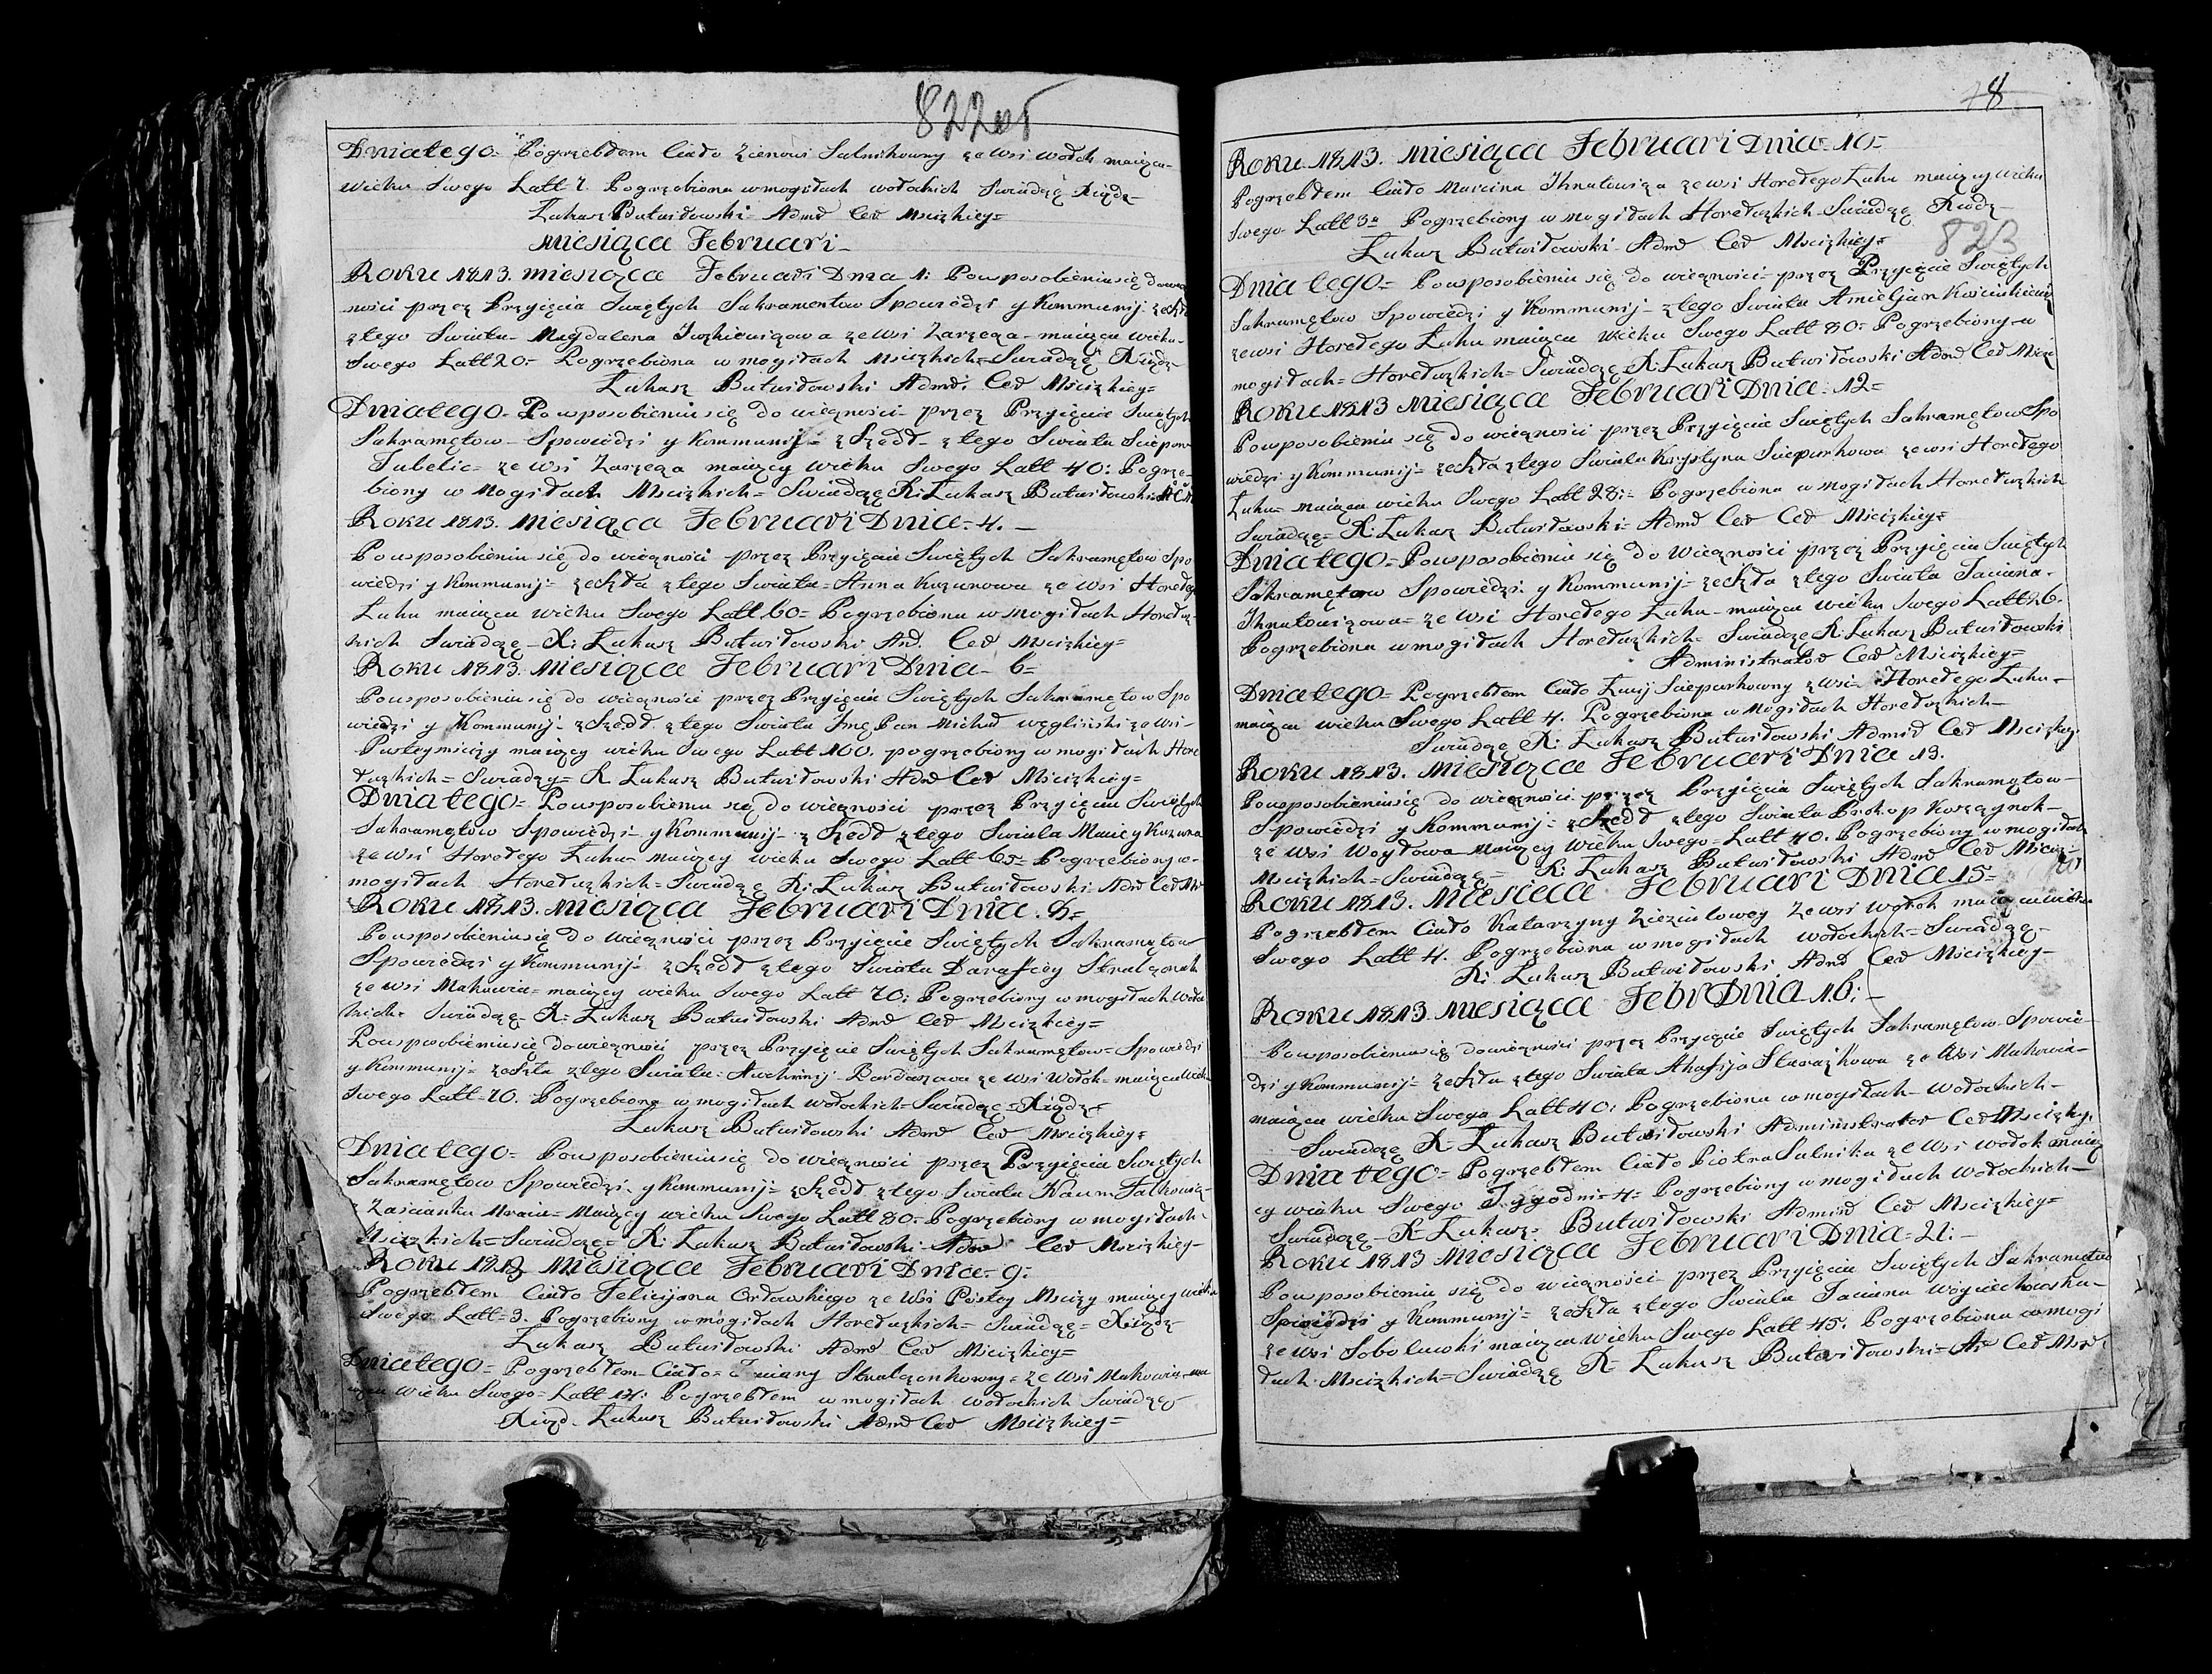 822 об
Dnia tego= Pogrzebłem Ciało Zienowi Salnikowny ze wsi Wołok maiąca
wieku Swego Latt 7. Pogrzebiona w mogiłach wołockich Swiadzę Xiądz
Łukasz Butwidowski Admr Cer Mscizkiey=
Miesiąca Februari
Roku 1813. Miesiąca Februari Dnia 1: Po usposobieniu się do wie
zności przez Przyięcia Swiętych Sakramentow Spowiedzi y Kommunij zeszła
ztego Swiata Magdalena ze wsi Zarzeza maiąca wieku
Swego Latt 20= Pogrzebiona w mogiłach Mscizkich= Swiadzę Xiądz
Łukasz Butwidowski Admr: Cer Mscizkiey=
Dnia tego= Po usposobieniu się do wieznosci przez Przyięcie Swiętych
Sakramętow Spowiedzi y Kommunij= zSzedł ztego Swiata Sciepan
Jubelic= ze wsi Zarzeza maiązy wieku Swego Latt 40: Pogrze-
biony w Mogiłach Mscizkich= Swiadzę X: Łukasz Butwidowski A C M
Roku 1813. Miesiąca Februari Dnia 4.
Po usposobieniu się do wieznosci przez Przyięcie Swiętych Sakramętow Spo
wiedzi y Kommunij= zeszła ztego Swiata= Anna Kuzurowa ze wsi Horełego
Łuhu maiąca wieku Swego Latt 60= Pogrzebiona w mogiłach Horełuz-
kich Swiadzę X: Łukasz Butwidowski Ad. Cer Mscizkiey=
Roku 1813. Miesiąca Februari Dnia 6=
Po usposobieniu się do wieznosci przez Przyięcia Swiętych Sakramętow Spo
wiedzi y Kommunij= zSzedł ztego Swiata Jmę Pan Michał węgliński ze wsi
Pusteymscizy maiązy wieku Swego Latt 100. pogrzebiony w mogiłach Hore
łuzkich= Swiadzę= X. Łukasz Butwidowski Adm Cer Mscizkiey=
Dnia tego= Po usposobieniu się do wieznosci przez Przyięcia Swiętych
Sakramętow Spowiedzi y Kommunij= zSzedł ztego Swiata Maciey Kuzura
ze wsi Horełego Łuhu maiązy wieku Swego Latt 65= Pogrzebiony w
mogiłach Horełuzkich= Swiadzę X: Łukasz Butwidowski Adm Cer Ms
Roku 1813. Miesiąca Februari Dnia. 8=
Po usposobieniu się do wieznosci przez Przyięcie Swiętych Sakramętow
Spowiedzi y Kommunij= zSzedł ztego Swiata Darafiey Strulzonok
ze wsi Makowia= maiązy wieku Swego Latt 70: Pogrzebiony w mogiłach Woło
kich= Swiadzę X= Łukasz Butwidowski Admr Cer Mscizkiey=
Po usposobieniu się do wieznosci przez Przyięcie Swiętych Sakramętow= Spowiedzi
y Kommunij= zeszła ztego Swiata: Auchimij Bardaszowa ze wsi Wołok= maiąca wieku
Swego Latt 70. Pogrzebiona w mogiłach wołockich= Swiadzę= Xiądz=
Łukasz Butwidowski Admr Cer Mscizkiey=
Dnia tego= Po usposobieniu się do wieznosci przez Przyięcia Swiętych
Sakramętow Spowiedzi y Kommunij= zSzedł ztego Swiata Naum
z Zaścianku maiązy wieku Swego Latt 80= Pogrzebiony w mogiłach
Mscizkich= Swiadzę= X: Łukasz Butwidowski Admr Cer Mscizkiey
Roku 1813 Miesiąca Februari Dnia= 9=
Pogrzebłem Ciało Felicijana Orłowskiego ze Wsi Pustey Mscizy maiązy wieku
Swego Latt= 3. Pogrzebiony w mogiłach Horełuzkich= Swiadzę= Xiądz
Łukasz Butwidowski Admr Cer Mscizkiey=
Dnia tego= Pogrzebłem Ciało= ze wsi Makowia ma
iąca wieku Swego= Latt Pogrzebłem w mogiłach wołockich Swiadzę
Xiąd. Łukasz Butwidowski Admr Cer Mscizkiey=
78
Roku 1813. Miesiąca Februari Dnia= 10=
Pogrzebłem Ciało Marcina Ihnatowiza ze wsi Horełego Łuhu maiązy wieku
Swego Latt 3= Pogrzebiony w mogiłach Horełuzkich Swiadzę Xiądz
Łukasz Butwidowski Admr Cer Mscizkiey=
823
Dnia tego= Po usposobieniu się do wieznosci= przez Przyięcie Swiętych
Sakramętow Spowiedzi y Kommunij= ztego Swiata Amieljan
ze wsi Horełego Łuhu maiąca wieku Swego Latt 80= Pogrzebiony w
mogiłach= Horełuzkich= Swiadzę= X: Łukasz Butwidowski Admr Cer Msciz
Roku 1813 Miesiąca Februari Dnia= 12=
Po usposobieniu się do wieznosci przez Przyięcie Swiętych Sakramętow Spo
wiedzi y Kommunij= zeszła ztego Swiata Krystyna Sciepurkowa ze wsi Horełego
Łuhu= maiąca wieku Swego Latt 28= Pogrzebiona w mogiłach Horełuzkich
Swiadzę= X: Łukasz Butwidowski= Admr Cer Cer Mscizkiey=
Dnia tego= Po usposobieniu się do Wieznosci przez Przyięcia Swiętych
Sakramętow Spowiedzi y Kommunij= zeszła ztego Swiata Taciana
Ihnatowizowa= ze wsi Horełego Łuhu= maiąca wieku Swego Latt 26.
Pogrzebiona w mogiłach Horełuzkich= Swiadzę X: Łukasz Butwidowski
Administrator Cer Mscizkiey=
Dnia tego= Pogrzebłem Ciało Sciepurkowny z wsi= Horełego Łuhu=
maiąca wieku Swego Latt 4. Pogrzebiona w Mogiłach Horełuzkich=
Swiadzę X: Łukasz Butwidowski Admr Cer Mscizkiey
Roku 1813. Miesiąca Februari Dnia 13.
Po usposobieniu się do wieznosci przez Przyięcia Swiętych Sakramętow=
Spowiedzi y Kommunij= zSzedł ztego Swiata Prokop
ze wsi Woytowa maiązy wieku Swego= Latt 40. Pogrzebiony w mogiłach
Mscizkich= Swiadzę= X: Łukasz Butwidowski Admr Cer Msciz
Roku 1813. Miesieca Februari Dnia 15=
Pogrzebłem Ciało Katarzyny Ziezulowey ze wsi Wołok maiąca wieku
Swego Latt 4. Pogrzebiona w mogiłach wołockich= Swiadzę=
X: Łukasz Butwidowski Admr Cer Mscizkiey=
Roku 1813. Miesiąca Febr Dnia 16:
Po usposobieniu się do wieznosci przez Przyięcie Swiętych Sakramętow Spowie
dzi y Kommunij= zeszła ztego Swiata Ahafija ze Wsi Makowia=
maiąca wieku Swego Latt 40: Pogrzebiona w mogiłach= Wołockich=
Swiadzę X= Łukasz Butwidowski Administrator Cer Mscizkiey
Dnia tego= Pogrzebłem Ciało Piotra Salnika ze wsi wołok maią
cy wieku Swego Tygodni= 4= Pogrzebiony w mogiłach Wołockich=
Swiadzę X= Łukasz= Butwidowski Admr Cer Mscizkiey=
Roku 1813 Miesiąca Februari Dnia= 21:
Po usposobieniu się do wieznosci= przez Przyięcia Swiętych Sakramętow
Spowiedzi y Kommunij= zeszła ztego Swiata Taciana Woyciechowska=
ze wsi Sobolewski maiąca wieku Swego Latt 45: Pogrzebiona w mogi
łach Mscizkich= Swiadzę X= Łukasz Butwidowski= Ar Cer Msciz